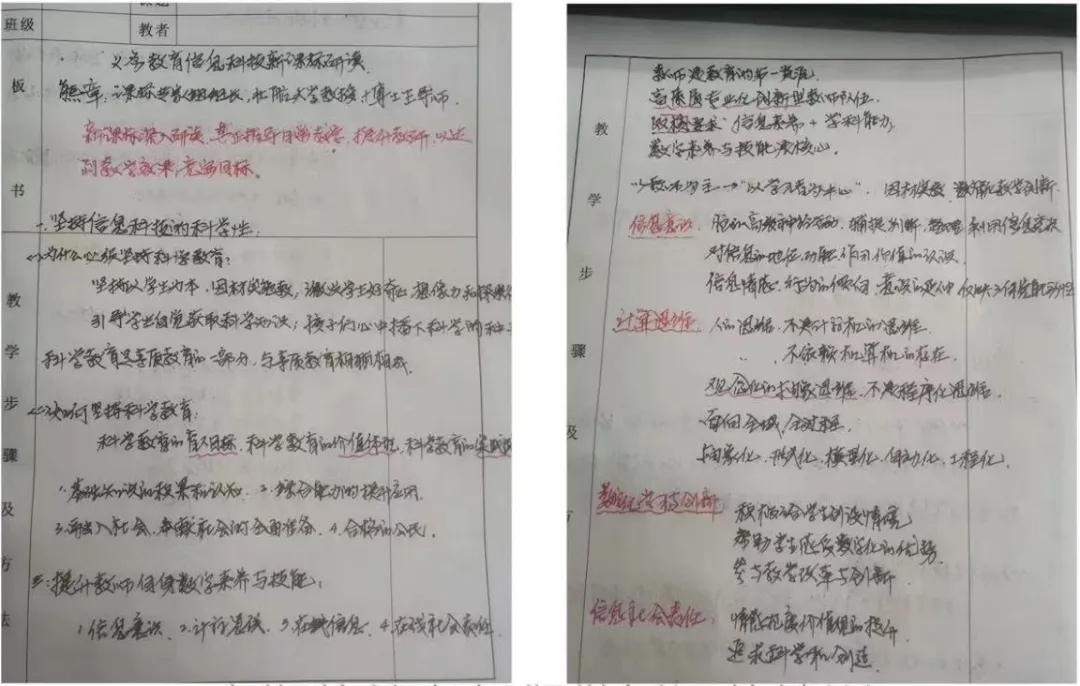 班级
教者
板书
教学步骤及方法
义务教育信息科技新课标研读
熊璋:课标专家组组长,北航大学教授,博士生导师.
新课标深入研读,真正指导日常教学,提升教研,以达
到教学效果,意图目标。
一.坚持信息科技的科学性:
<一>为什么必须坚持科学教育:
坚持以学生为本,因材施教,激发学生好奇心 想像力和探
引导学生自觉获取科学知识;孩子们心中播下科学的种
科学教育是素质教育的一部分,与素质教育相辅相成.
<二>如何坚持科学教育:
科学教育的育人目标.科学教育的价值 科学教育的实
1.基础知识的积累和认知. 2.综合能力的提升应用.
3.融入社会、奉献社会的全面准备. 4.合格的公民.
二:提升教师自身数字素养与技能:
1.信息意识. 2.计算 3. 4. 社会责任.
教学步骤及方
教师是教育的第一资源.
高质量专业化创新型教师队伍.
信息素养+学科能力
数字素养与技能是核心.
以教师为主→"以学习者为中心". 因材施教. 教学创新.
信息意识. 脑的高级神经活动,捕捉 判断,整理 利用信息
对信息的地位、功能、作用、价值的认识.
信息情感,行为的倾向.
计算思维. 人的思维.不是计算机的思维.
不依赖计算机的存在.
观念化的抽象思维.不是程序化思维.
面向全域,全过程.
抽象化、形式化、模型化、自动化、工程化.
数字化学习与创新 积极 学生创设情境
帮助学生感受数字化的优势.
参与教学改革与创新.
信息社会责任. 情感态度价值观的提升.
追求科学和创造.